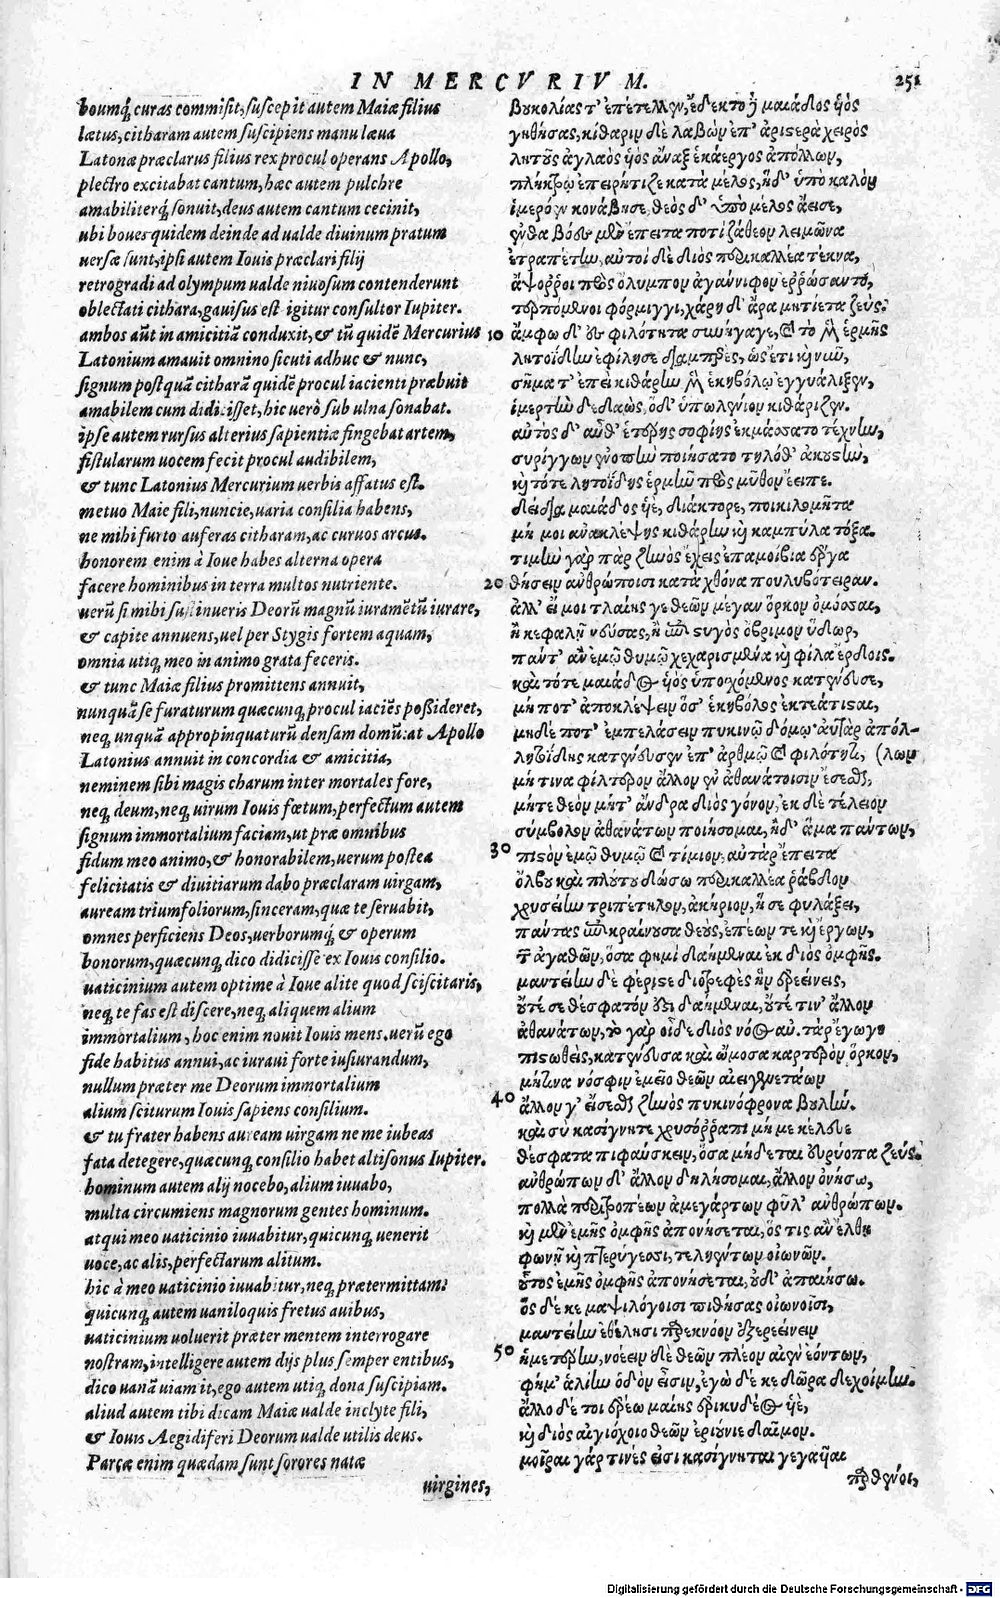 IN MERCVRIVM.
251
boumq́; curas commisit, suscepit autem Maiæ filius
lætus, citharam autem suscipiens manu læua
Latonæ præclarus filius rex procul operans Apollo,
plectro excitabat cantum, hæc autem pulchre
amabiliterq́; sonuit, deus autem cantum cecinit,
ubi boues quidem deinde ad ualde diuinum pratum
uersæ sunt, ipsi autem Iouis præclari filij
retrogradi ad olympum ualde niuosum contenderunt
oblectati cithara, gauisus est igitur consultor Iupiter.
ambos aũt in amicitiã conduxit, & tũ quidẽ Mercurius
Latonium amauit omnino sicuti adhuc & nunc,
signum postquã citharã quidẽ procul iacienti præbuit
amabilem cum didicisset, hic uerò sub ulna sonabat.
ipse autem rursus alterius sapientiæ fingebat artem,
fistularum uocem fecit procul audibilem,
& tunc Latonius Mercurium uerbis affatus est.
metuo Maie fili, nuncie, uaria consilia habens,
ne mihi furto auferas citharam, ac curuos arcus.
honorem enim à Ioue habes alterna opera
facere hominibus in terra multos nutriente.
uerũ si mihi sustinueris Deorũ magnũ iuramẽtũ iurare,
& capite annuens, uel per Stygis fortem aquam,
omnia utiq; meo in animo grata feceris.
& tunc Maiæ filius promittens annuit,
nunquã se furaturum quæcunq; procul iaciẽs possideret,
neq; unquã appropinquaturũ densam domũ: at Apollo
Latonius annuit in concordia & amicitia,
neminem sibi magis charum inter mortales fore,
neq; deum, neq; uirum Iouis fœtum, perfectum autem
signum immortalium faciam, ut præ omnibus
fidum meo animo, & honorabilem, uerum postea
felicitatis & diuitiarum dabo præclaram uirgam,
auream triumfoliorum, sinceram, quæ te seruabit,
omnes perficiens Deos, uerborumq́; & operum
bonorum, quæcunq; dico didicisse ex Iouis consilio.
uaticinium autem optime à Ioue alite quod sciscitaris,
neq; te fas est discere, neq; aliquem alium
immortalium, hoc enim nouit Iouis mens. uerũ ego
fide habitus annui, ac iuraui forte iusiurandum,
nullum præter me Deorum immortalium
alium sciturum Iouis sapiens consilium.
& tu frater habens auream uirgam ne me iubeas
fata detegere, quæcunq; consilio habet altisonus Iupiter.
hominum autem alij nocebo, alium iuuabo,
multa circumiens magnorum gentes hominum.
atqui meo uaticinio iuuabitur, quicunq; uenerit
uoce, ac alis, perfectarum alitum.
hic à meo uaticinio iuuabitur, neq; prætermittam:
quicunq; autem uaniloquis fretus auibus,
uaticinium uoluerit præter mentem interrogare
nostram, intelligere autem dijs plus semper entibus,
dico uanã uiam it, ego autem utiq; dona suscipiam.
aliud autem tibi dicam Maiæ ualde inclyte fili,
& Iouis Aegidiferi Deorum ualde utilis deus.
Parcæ enim quædam sunt sorores natæ
uirgines,
βουκολίας τ' ἐπέτελλεν, ἔδεκτο ἢ μαιάδος υἱὸς
γηθήσας, κίθαριν δὲ λαβὼν ἐπ' ἀριστερὰ χειρὸς
λητοῦς ἀγλαὸς υἱὸς ἄναξ ἑκάεργος ἀπόλλων,
πλήκτρῳ ἐπειρήτιζε κατὰ μέλος, ἡ δ' ὑπὸ καλὸν
ἱμερόεν κονάβησε, θεὸς δ' ὑπὸ μέλος ἄεισε,
ἔνθα βόες μὲν ἔπειτα ποτὶ ζάθεον λειμῶνα
ἐτραπέτην, αὐτοὶ δὲ διὸς περικαλλέα τέκνα,
ἄψοῤῥοι πρὸς ὄλυμπον ἀγάννιφον ἐῤῥώσαντο,
τερπόμενοι φόρμιγγι, χάρη δ' ἄρα μητίετα ζεύς:
10 ἄμφω δ' ἐς φιλότητα συνήγαγε, καὶ τὸ μὲν ἑρμῆς
λητοΐδην ἐφίλησε διαμπερὲς, ὡς ἔτι καὶ νῦν,
σῆμα τ' ἐπεὶ κίθαριν μὲν ἑκηβόλῳ ἐγγυάλιξεν,
ἱμερτὴν δεδαὼς, ὁ δ' ὑπωλένιον κιθάριζεν.
αὐτὸς δ' αὖθ' ἑτέρης σοφίης ἐκμάσσατο τέχνην,
συρίγγων ἐνοπὴν ποιήσατο τηλόθ' ἀκουστὴν,
καὶ τότε λητοΐδης ἑρμῆν πρὸς μῦθον ἔειπε.
δείδια μαιάδος υἱὲ, διάκτορε, ποικιλομῆτα
μή μοι ἀνακλέψῃς κιθάρην καὶ καμπύλα τόξα.
τιμὴν γὰρ πὰρ ζηνὸς ἔχεις ἐπαμοίβια ἔργα
20 θήσειν ἀνθρώποισι κατὰ χθόνα πουλυβότειραν.
ἀλλ' εἴ μοι τλαίης γε θεῶν μέγαν ὅρκον ὀμόσσαι,
ἢ κεφαλῇ νεύσας, ἢ ἐπὶ στυγὸς ὄβριμον ὕδωρ,
πάντ' ἂν ἐμῷ θυμῷ κεχαρισμένα καὶ φίλα ἔρδοις.
καὶ τότε μαιάδος υἱὸς ὑποσχόμενος κατένευσε,
μή ποτ' ἀποκλέψειν ὅσ' ἑκηβόλος ἐκτεάτισαι,
μηδέ ποτ' ἐμπελάσειν πυκινῷ δόμῳ· αὐτὰρ ἀπόλ-
λητοΐδης κατένευσεν ἐπ' ἀρθμῷ καὶ φιλότητι, (λων
μή τινα φίλτερον ἄλλον ἐν ἀθανάτοισιν ἔσεσθαι,
μήτε θεὸν μήτ' ἄνδρα διὸς γόνον, ἐκ δὲ τέλειον
σύμβολον ἀθανάτων ποιήσομαι, ἠδ' ἅμα πάντων,
30 πιστὸν ἐμῷ θυμῷ καὶ τίμιον, αὐτὰρ ἔπειτα
ὄλβου καὶ πλούτου δώσω περικαλλέα ῥάβδον
χρυσείην τριπέτηλον, ἀκήριον, ἥ σε φυλάξει,
πάντας ἐπικραίνουσα θεοὺς, ἐπέων τε καὶ ἔργων,
τῶν ἀγαθῶν, ὅσα φημὶ δαήμεναι ἐκ διὸς ὀμφῆς.
μαντείην δὲ φέριστε διοτρεφὲς ἣν ἐρεείνεις,
οὔτέ σε θέσφατόν ἐστι δαήμεναι, οὔτέ τιν' ἄλλον
ἀθανάτων, τὸ γὰρ οἶδε διὸς νόος· αὐτὰρ ἔγωγε
πιστωθεὶς, κατένευσα καὶ ὤμοσα καρτερὸν ὅρκον,
μήτινα νόσφιν ἐμεῖο θεῶν αἰειγενετάων
40 ἄλλον γ' εἴσεσθαι ζηνὸς πυκινόφρονα βουλήν.
καὶ σὺ κασίγνητε χρυσόῤῥαπι μή με κέλευε
θέσφατα πιφαύσκειν, ὅσα μήδεται εὐρύοπα ζεύς.
ἀνθρώπων δ' ἄλλον δηλήσομαι, ἄλλον ὀνήσω,
πολλὰ περιτροπέων ἀμεγάρτων φῦλ' ἀνθρώπων.
καὶ μὲν ἐμῆς ὀμφῆς ἀπονήσεται, ὅς τις ἂν ἔλθῃ
φωνῇ καὶ πτερύγεσσι, τεληέντων οἰωνῶν.
οὗτος ἐμῆς ὀμφῆς ἀπονήσεται, οὐδ' ἀπατήσω.
ὃς δέ κε μαψιλόγοισι πιθήσας οἰωνοῖσι,
μαντείην ἐθέλησι παρὲκ νόον ἐξερεείνειν
50 ἡμετέρην, νοέειν δὲ θεῶν πλέον αἰὲν ἐόντων,
φήμ' ἁλίην ὁδὸν εἶσιν, ἐγὼ δέ κε δῶρα δεχοίμην.
ἄλλο δέ τοι ἐρέω μαίης ἐρικυδέος υἱὲ,
καὶ διὸς αἰγιόχοιο θεῶν ἐριούνιε δαῖμον.
μοῖραι γάρ τινές εἰσι κασίγνηται γεγαυῖαι
παρθένοι,
Digitalisierung gefördert durch die Deutsche Forschungsgemeinschaft - DFG